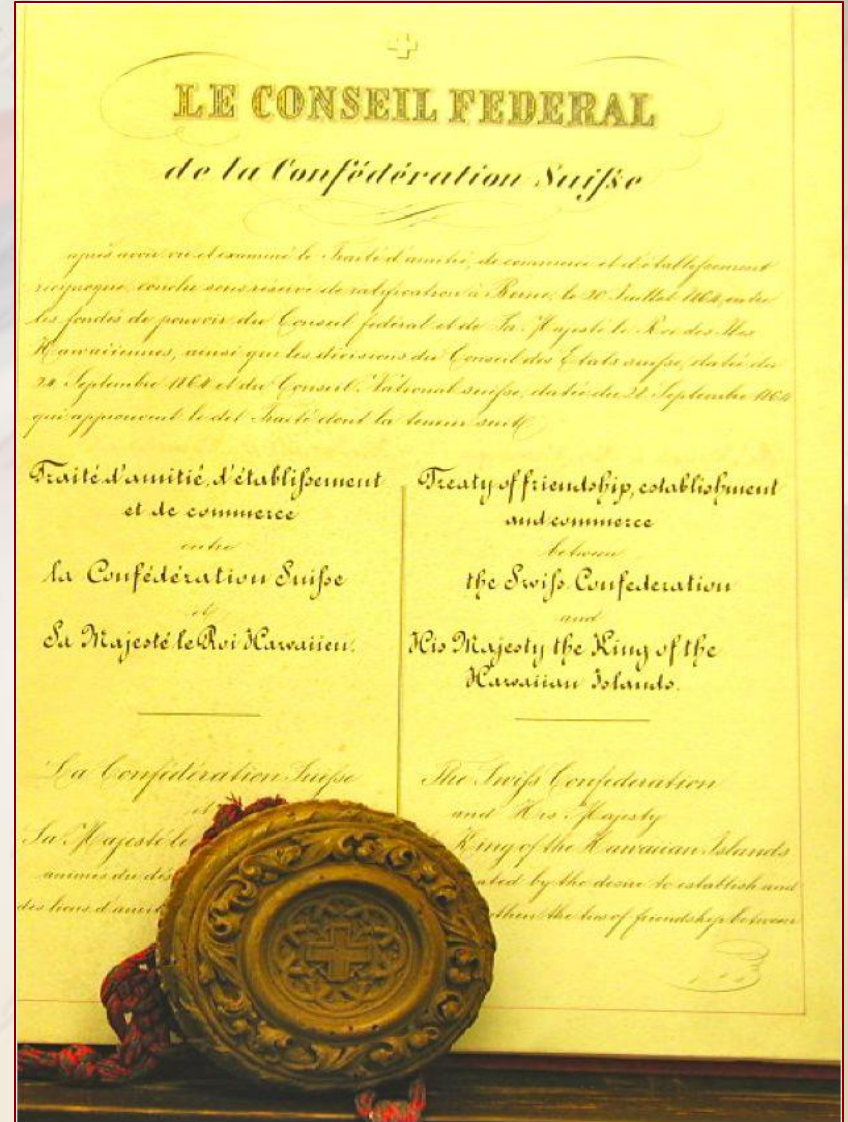 LE CONSEIL FEDERAL
de la Confédération Suiſse
après avoir vu et examiné le Traité d'amitié, de commerce et d'établiſsement
réciproque, conclu sous réserve de ratification à Berne, le 20 Juillet 1864, entre
les fondés de pouvoir du Conseil fédéral et de Sa Majesté le Roi des Iles
Hawaiiennes, ainsi que les décisions du Conseil des Etats suiſse, datée du
24 Septembre 1864 et du Conseil National suiſse, datée du 28 Septembre 1864
qui approuvent le dit Traité dont la teneur suit
Traité d'amitié, d'établiſsement
et de commerce
entre
la Confédération Suiſse
et
Sa Majesté le Roi Hawaiien.
La Confédération Suiſse
et
Sa Majesté le
animés du dés
des liens d'amit
Treaty of friendship, establishment
and commerce
between
the Swiſs Confederation
and
His Majesty the King of the
Hawaiian Islands.
The Swiſs Confederation
and His Majesty
King of the Hawaiian Islands
ated by the desire to establish and
then the ties of friendship between